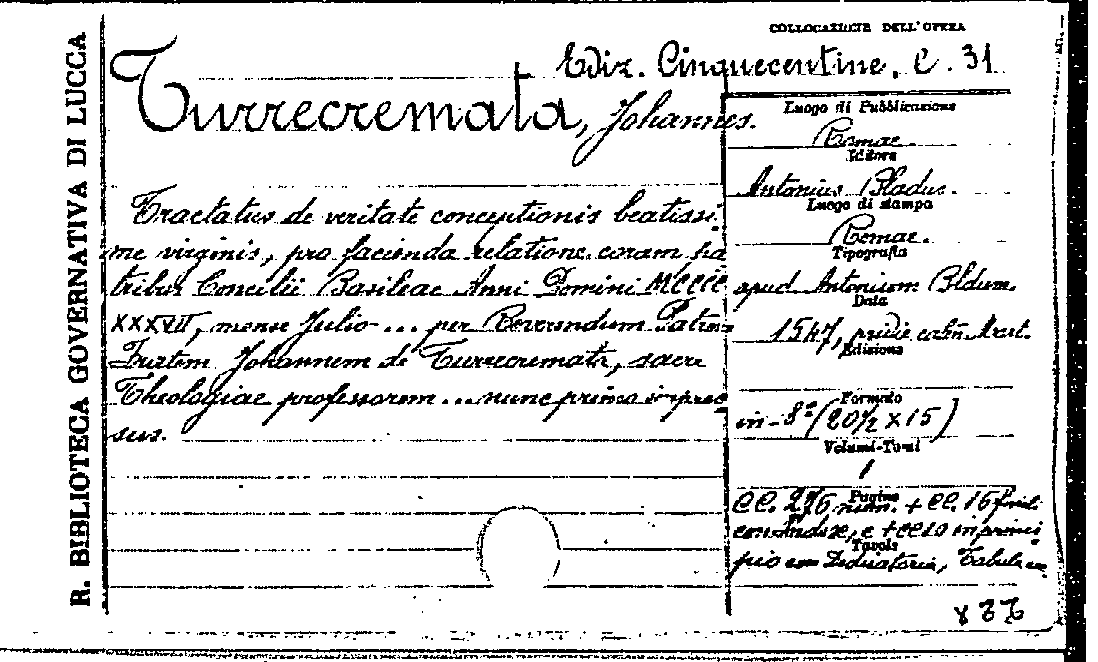 R. BIBLIOTECA GOVERNATIVA DI LUCCA
COLLOCAZIONE DELL'OPERA
Ediz. Cinquecentine. C. 31
Turrecremata, Johannes.
Tractatus de veritate conceptionis beatissi-
me virginis, pro facienda relatione coram pa
tribus Concilii Basileae Anni Domini MCCCC
XXXVII, mense Julio... per Reverendum Patrem
Fratem Johannem de Turrecremata, sacre
Theologiae professorem... nunc primo impres
sus.
Luogo di Pubblicazione
Romae.
Editore
Antonius Bladus.
Luogo di stampa
Romae.
Tipografia
apud Antonium Bldum.
Data
1547, pridie
Edizione
Formato
in-8º (20½ X 15)
Volumi-Tomi
1
Pagine
CC. 276 num. + CC. 16
con Indize, e + CC 10 in princi
Tavole
pio con Dedicatoria, Tabula